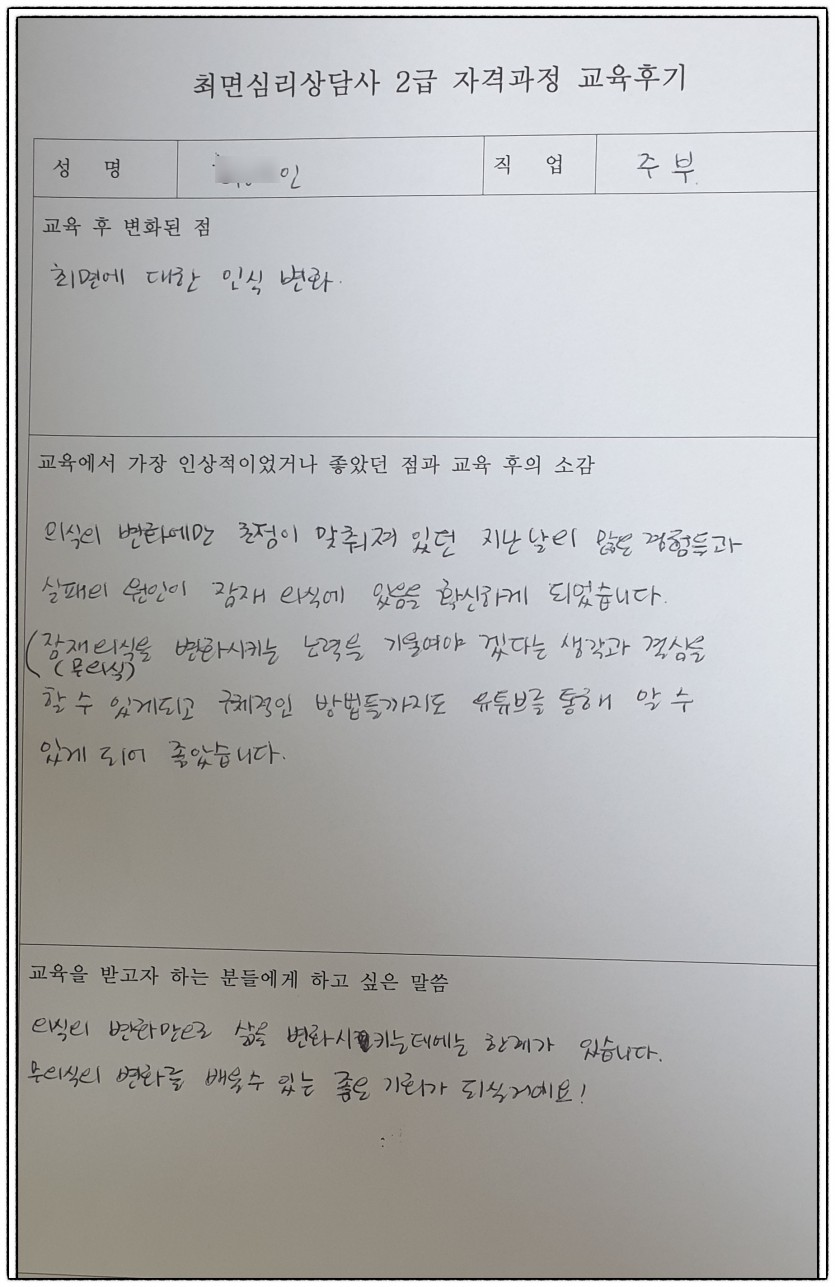 최면심리상담사 2급 자격과정 교육후기
성 명 인 직 업 주부
교육 후 변화된 점
최면에 대한 인식 변화.
교육에서 가장 인상적이었거나 좋았던 점과 교육 후의 소감
의식의 변화에만 초점이 맞춰져 있던 지난날의 많은 경험들과
실패의 원인이 잠재 의식에 있음을 확신하게 되었습니다.
(잠재의식을 변화시키는 노력을 기울여야 겠다는 생각과 결심을
(무의식)
할 수 있게되고 구체적인 방법들까지도 유튜브를 통해 알 수
있게 되어 좋았습니다.
교육을 받고자 하는 분들에게 하고 싶은 말씀
의식의 변화만으로 삶을 변화시키는데에는 한계가 있습니다.
무의식의 변화를 배울수 있는 좋은 기회가 되실거예요!